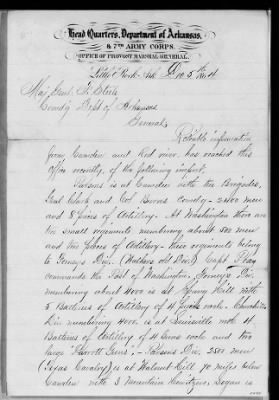 Head Quarters, Department of Arkansas,
& 7TH ARMY CORPS.
OFFICE OF PROVOST MARSHAL GENERAL.
Little Rock Ark 5th
Maj Genl F. Steele
Comdg Dept of Arkansas
General,
Reliable information
from Camden and Red river, has reached this
office recently, of the following import,
Parsons is at Camden with two Brigades,
Genl Clark and Col Burns Comdg - 2400 men
and 8 pieces of Artillery. At Washington there are
two small regiments numbering about 500 men
and two pieces of Artillery - these regiments belong
to Div. Capt
commands the Post of Washington. Div
numbering about 4000 is at Spring Hill with
5 Batteries of Artillery of 4 guns each. Churchills
Div numbering 4000. is at Lewisville with
Batteries of Artillery of 4 Guns each and two
large "Parrott Guns". - Parsons Div. 3500 men
(Texas Cavalry) is at Walnut Hill 70 miles below
Camden with 3 Mountain Howitzers. Logan is